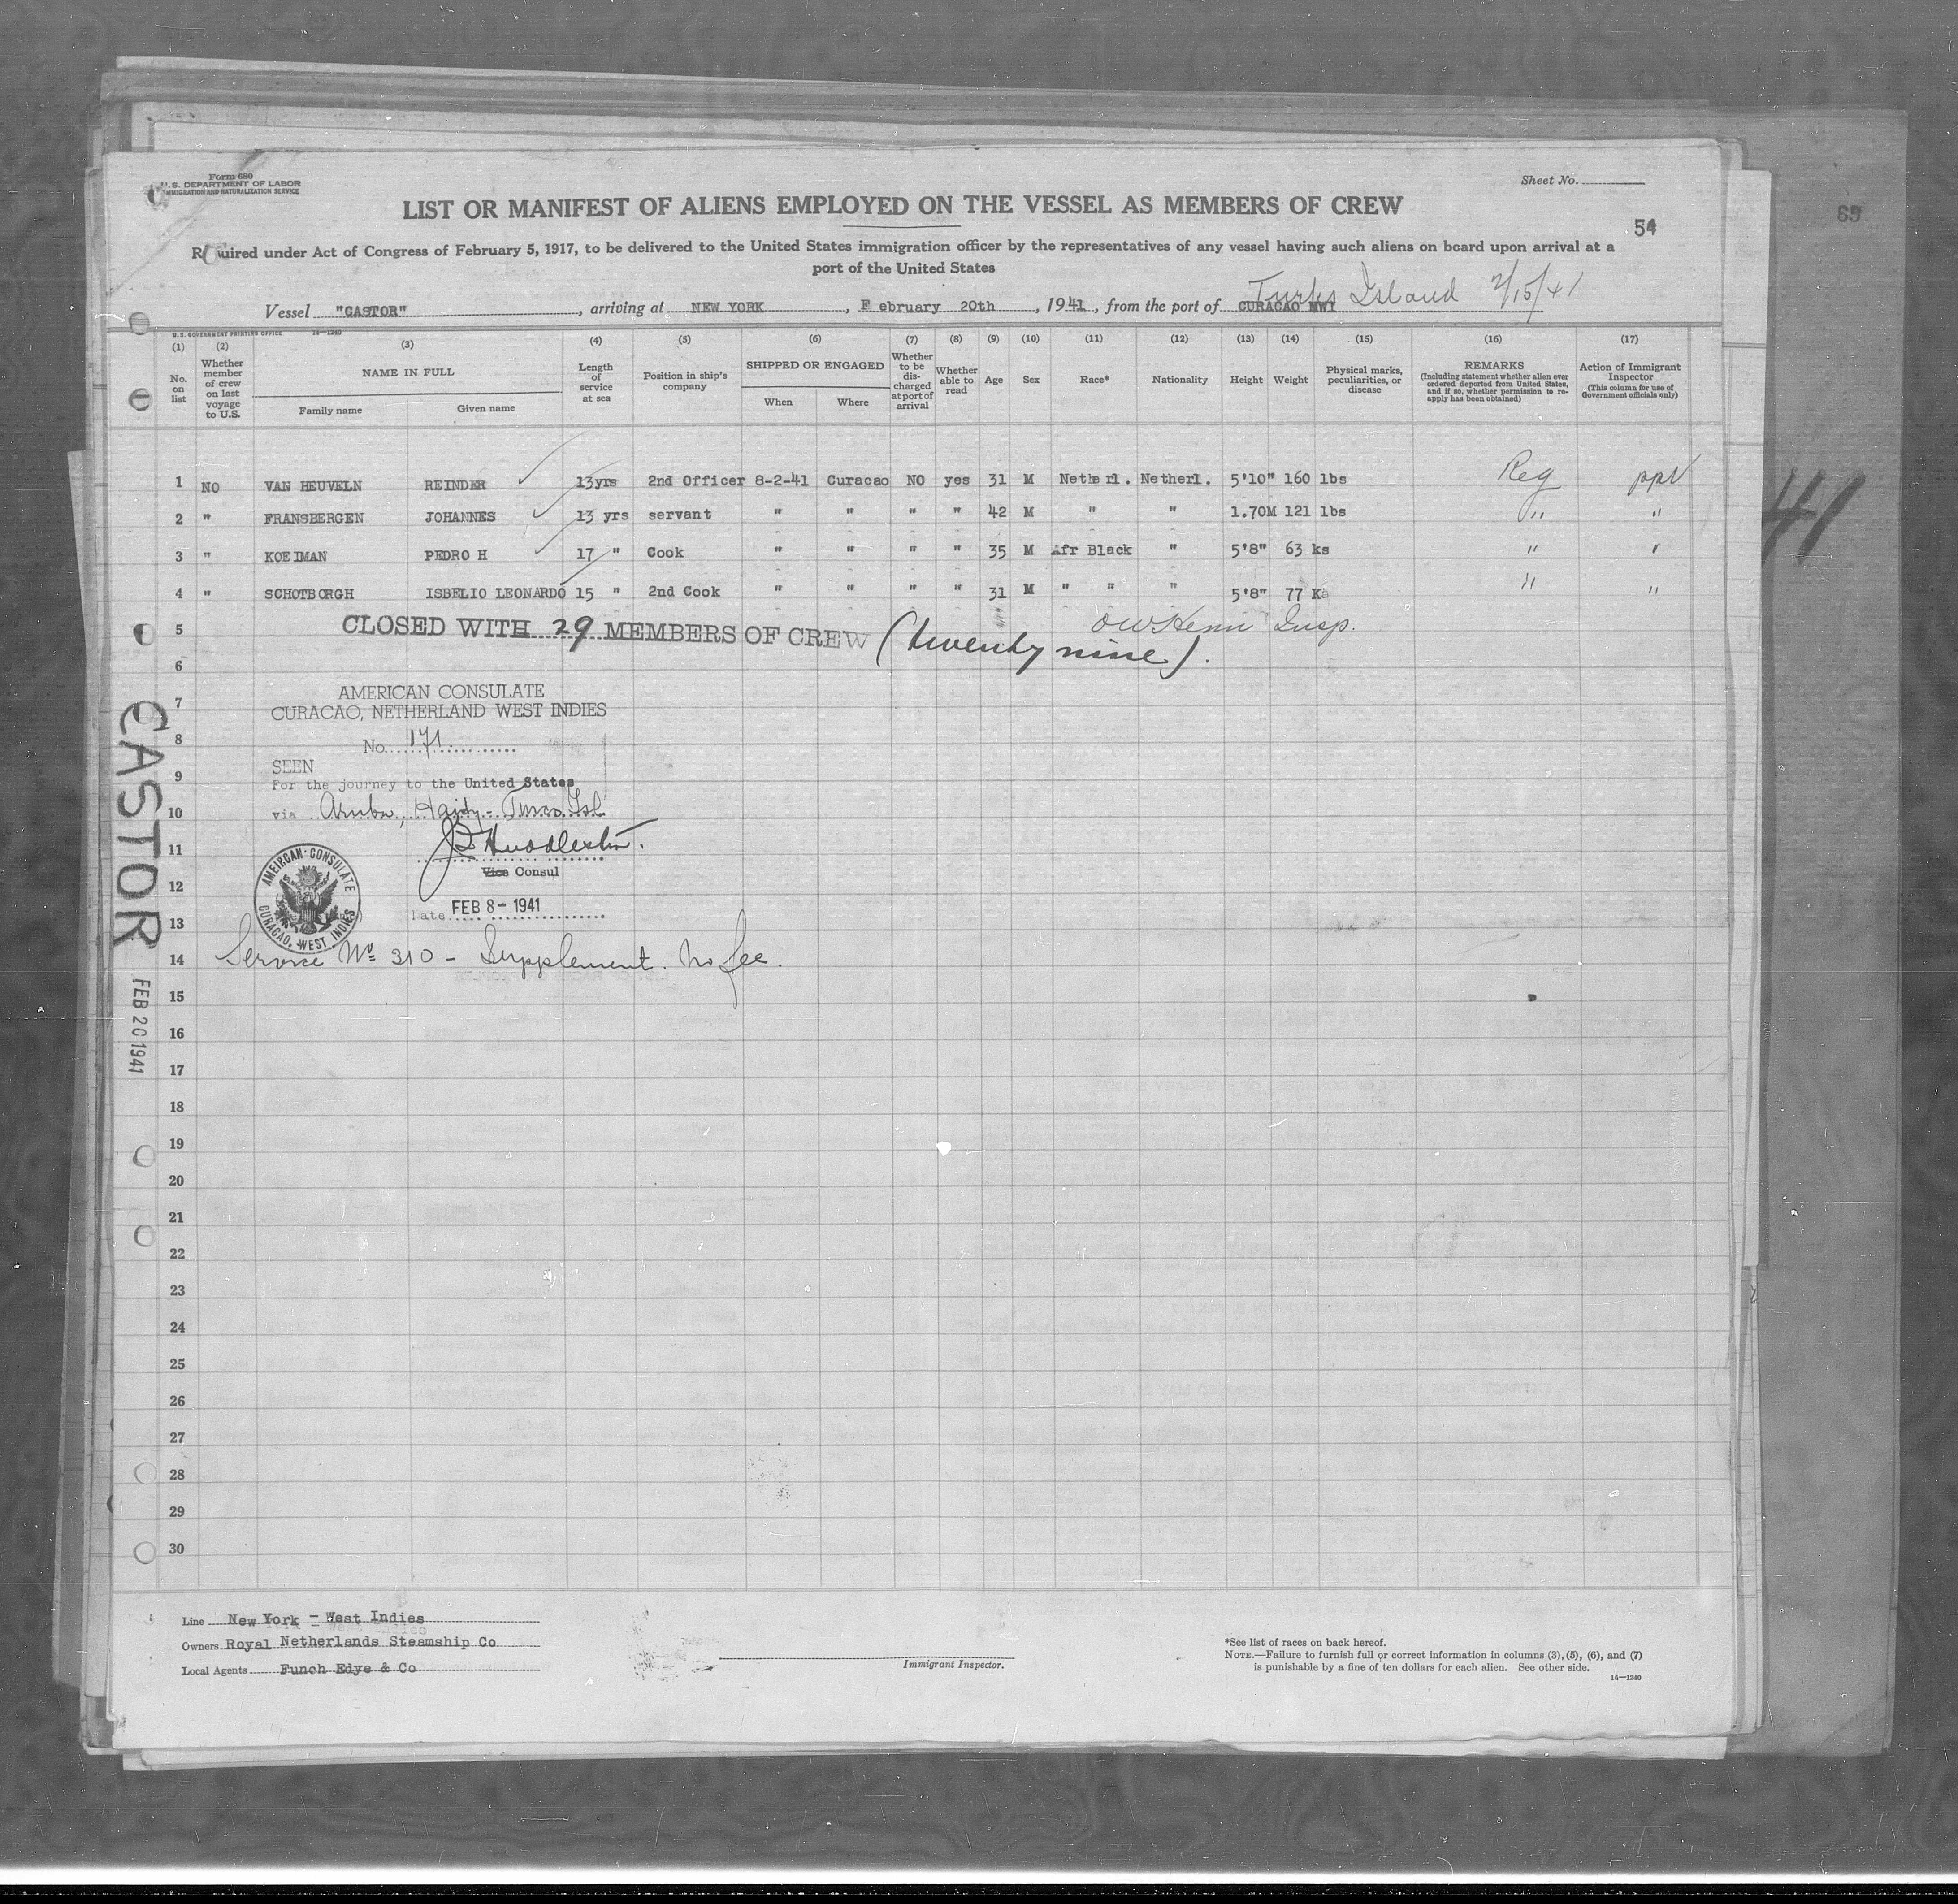 Form 680
U. S. DEPARTMENT OF LABOR
IMMIGRATION AND NATURALIZATION SERVICE
Sheet No.
LIST OR MANIFEST OF ALIENS EMPLOYED ON THE VESSEL AS MEMBERS OF CREW
54
65
Required under Act of Congress of February 5, 1917, to be delivered to the United States immigration officer by the representatives of any vessel having such aliens on board upon arrival at a
port of the United States
Turks Island 2/15/41
Vessel "CASTOR", arriving at NEW YORK, February 20th, 1941, from the port of CURACAO NWI
U. S. GOVERNMENT PRINTING OFFICE 14—1240
(1) (2) (3) (4) (5) (6) (7) (8) (9) (10) (11) (12) (13) (14) (15) (16) (17)
No. on list
Whether member of crew on last voyage to U.S.
NAME IN FULL
Family name Given name
Length of service at sea
Position in ship's company
SHIPPED OR ENGAGED
When Where
Whether to be discharged at port of arrival
Whether able to read
Age
Sex
Race*
Nationality
Height
Weight
Physical marks, peculiarities, or disease
REMARKS
(Including statement whether alien ever ordered deported from United States, and if so, whether permission to re-apply has been obtained)
Action of Immigrant Inspector
(This column for use of Government officials only)
1 NO VAN HEUVELN REINDER 13yrs 2nd Officer 8-2-41 Curacao NO yes 31 M Netherl. Netherl. 5'10" 160 lbs Reg
2 " FRANSBERGEN JOHANNES 13 yrs servant " " " " 42 M " " 1.70M 121 lbs " "
3 " KOEIMAN PEDRO H 17 " Cook " " " " 35 M Afr Black " 5'8" 63 ks " "
4 " SCHOTBORGH ISBELIO LEONARDO 15 " 2nd Cook " " " " 31 M " " " 5'8" 77 Ks " "
5 CLOSED WITH 29 MEMBERS OF CREW (twenty nine). Insp.
6
7 AMERICAN CONSULATE
CURACAO, NETHERLAND WEST INDIES
8 No. 171
9 SEEN
For the journey to the United States
10 via Aruba, Hayty - Turco Isl
11 Vice Consul
AMERICAN CONSULATE
CURACAO, WEST INDIES
12
13 Date FEB 8 - 1941
14 Service No 310 - Supplement. No fee.
15
16
17
18
19
20
21
22
23
24
25
26
27
28
29
30
CASTOR
FEB 20 1941
41
Line New York - West Indies
Owners Royal Netherlands Steamship Co
Local Agents Funch Edye & Co
Immigrant Inspector.
*See list of races on back hereof.
NOTE.—Failure to furnish full or correct information in columns (3), (5), (6), and (7)
is punishable by a fine of ten dollars for each alien. See other side.
14—1240